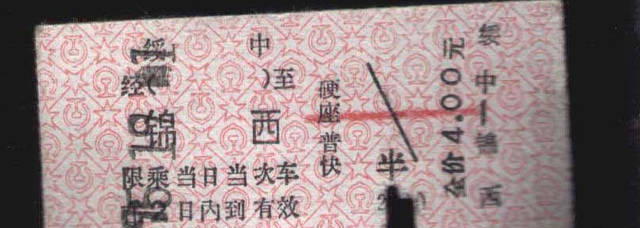 绥 中
经 )至
锦 西
限乘当日当次车
日内到有效
硬座普快
半
全价4.00元
绥中—锦西